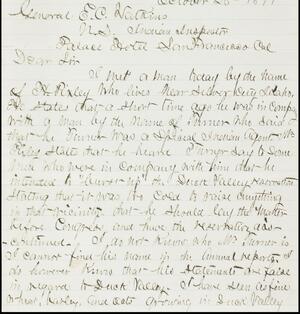 October 25 1877
General E.C. Watkins
U.S. Indian Inspector
Palace Hotel San Francisco Cal
Dear Sir
I met a man today by the name
of Who lives near Silver City Idaho.
He states that a short time ago he was in Comp
With a man by the Name of Turner Who said
that he Turner was a Special Indian Agent Mr
States that he heard Turner Say to Some
men who were in Company with him that he
intended to "burst up" the Duck Valley reservation
Stating that it was too Cold to raise anything
in that Vicinity that he should lay the Matter
before Congress and have the reservation dis-
continued. I do not Know who Mr Turner is
I cannot find his name in the annual reports. I
do however Know that his Statements are false
in regard to Duck Valley. I have Seen as fine
wheat, barley, and oats growing in Duck Valley